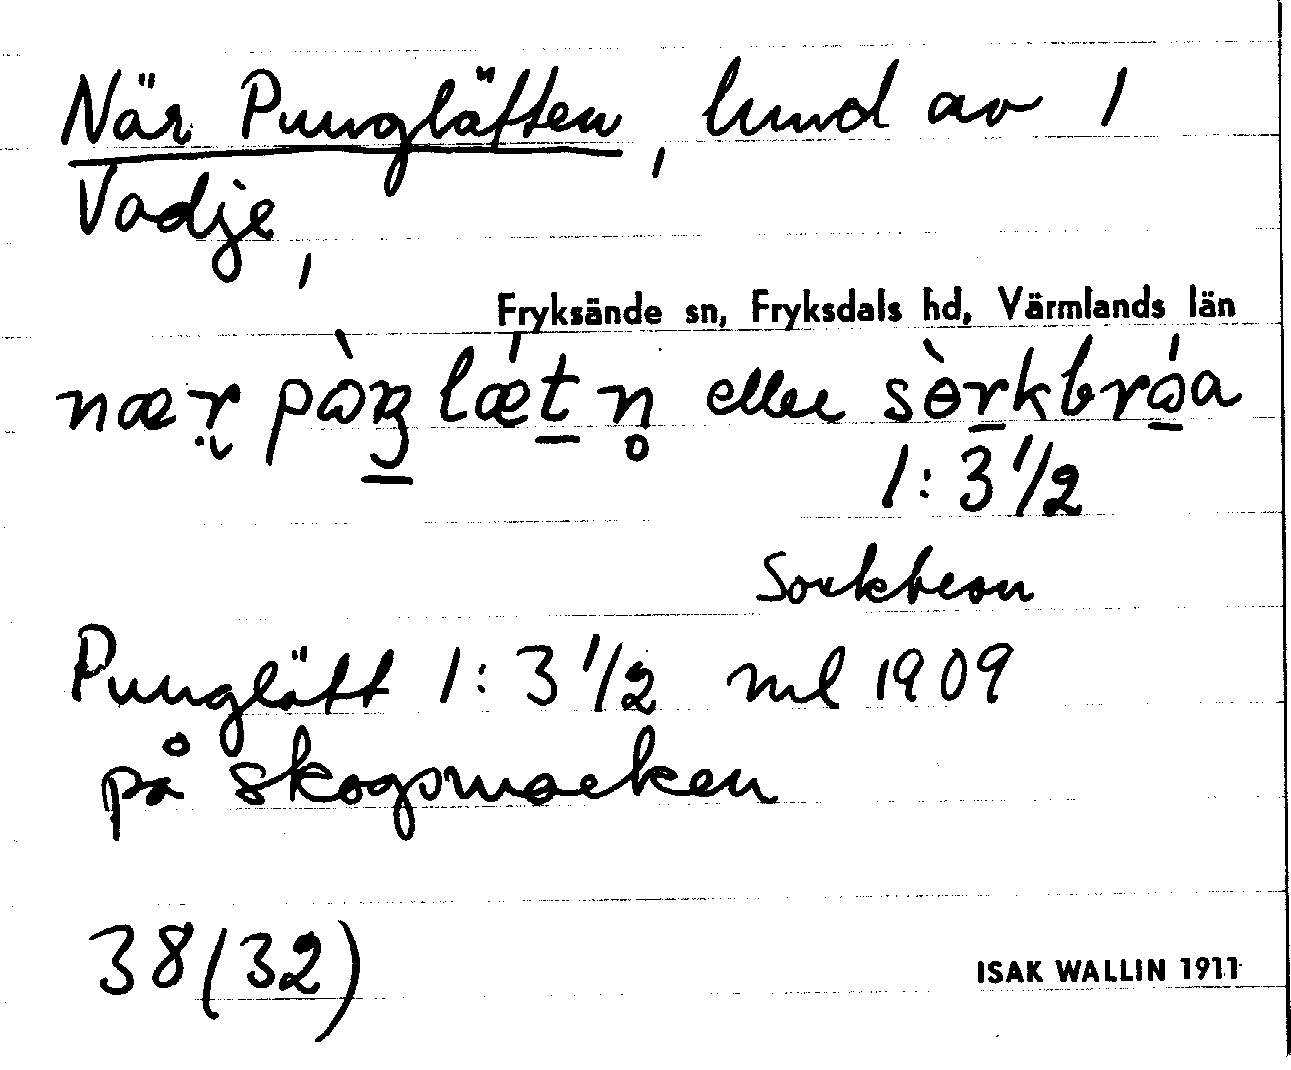 När Punglätten, lund av 1
Vadje,
Fryksände sn, Fryksdals hd, Värmlands län
eller
1: 3 1/2
Sorkbron
Punglätt 1: 3 1/2 ml 1909
på skogsmarken
38(32)
ISAK WALLIN 1911